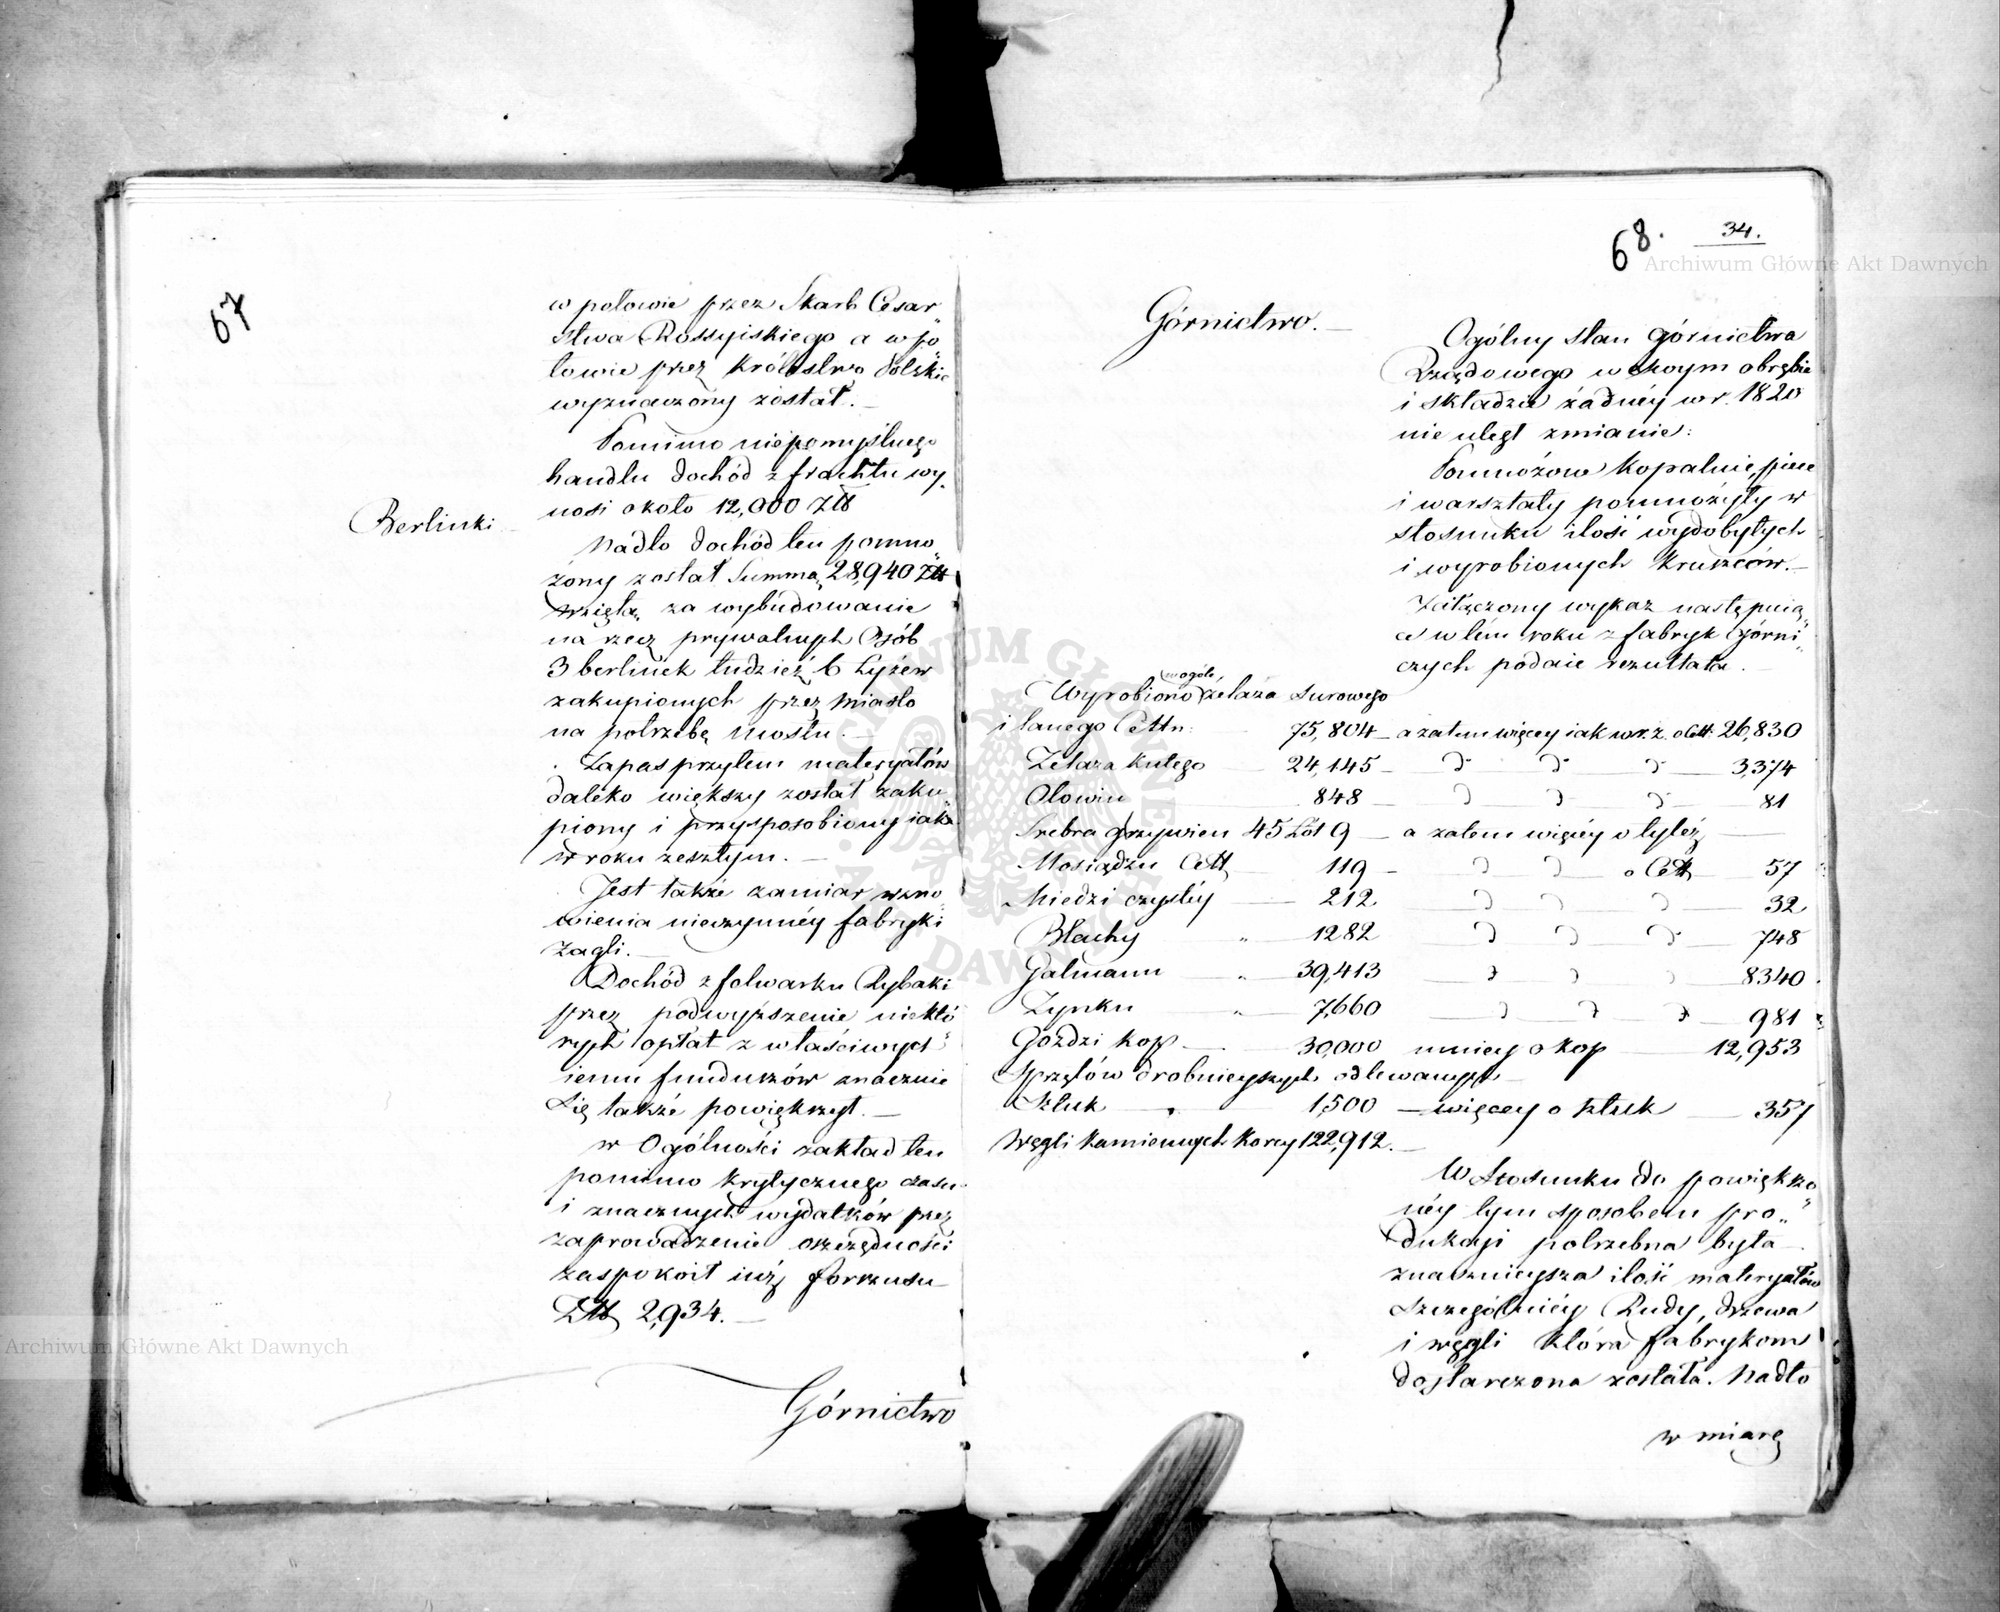 67
w połowie przez Skarb Cesar„
stwa Rossyiskiego a w po„
łowie przez Królestwo Polskie
wyznaczony został. —
Pomimo niepomyślnego
handlu dochód z frachtu wy„
nosi około 12,000 Złt
Berlinki
Nadto dochód ten pomno„
żony został Summą 28,940 Złt
wziętą za wybudowanie
na rzecz prywatnych Osób
3 berlinek tudzież 6 Łyżew
zakupionych przez Miasto
na potrzebę Mostu. —
Zapas przytem materyałów
daleko większy został zaku„
piony i przysposobiony iak
w roku zeszłym. —
Jest także zamiar wzno„
wienia nieczynnéy fabryki
Żagli. —
Dochód z folwarku Rybaki
przez podwyższenie niektó„
rych opłat z właściwych
iemu funduszów znacznie
się także powiększył. —
w Ogólności zakład ten
pomimo krytycznego czasu
i znacznych wydatków przez
zaprowadzenie oszczędności
zaspokoił iuż forszusu
Złt 2,934. —
Górnictwo
68. 34.
Górnictwo. —
Ogólny stan górnictwa
Rządowego w swoym obrębie
i składzie żadnéy w r. 1820
nie uległ zmianie:
Pomnożone kopalnie, piece
i warsztaty pomnożyły w
stosunku ilość wydobytych
i wyrobionych kruszców. —
Załączony wykaz następuią„
ce w tém roku z fabryk Górni„
czych podaie rezultata. —
wogóle
Wyrobiono żelaza surowego
i lanego Cettn: 75,804 — a zatem więcey iak w r. z. o Cett: 26,830
Żelaza kutego — 24,145 — d° d° d° — 3,374
Ołowiu — 848 — d d d° — 81
Srebra grzywien 45 Łót 9 — a zatem więcéy o tyleż —
Mosiądzu Cett 119 — d d o Cett — 57
Miedzi czystéy — 212 — d d d — 32
Blachy „ — 1282 d d d° — 748
Galmanu — „ — 39,413 d d d 8340
Zynku „ — 7,660 — d — d — d — 981
Goździ kop — 30,000 mniey o kop — 12,953
Sprzętów drobnieyszych odlewanych —
Sztuk — „ 1,500 — więcey o sztuk — 357
Węgli kamiennych korcy 122,912. —
W Stosunku do powiększo„
néy tym sposobem pro„
dukcyi potrzebna była
znacznieysza ilość materyałów
szczególniéy Rudy, drzewa
i węgli która fabrykom
dostarczona została. Nadto
w miarę
Archiwum Główne Akt Dawnych
Archiwum Główne Akt Dawnych
ARCHIWUM GŁÓWNE AKT DAWNYCH